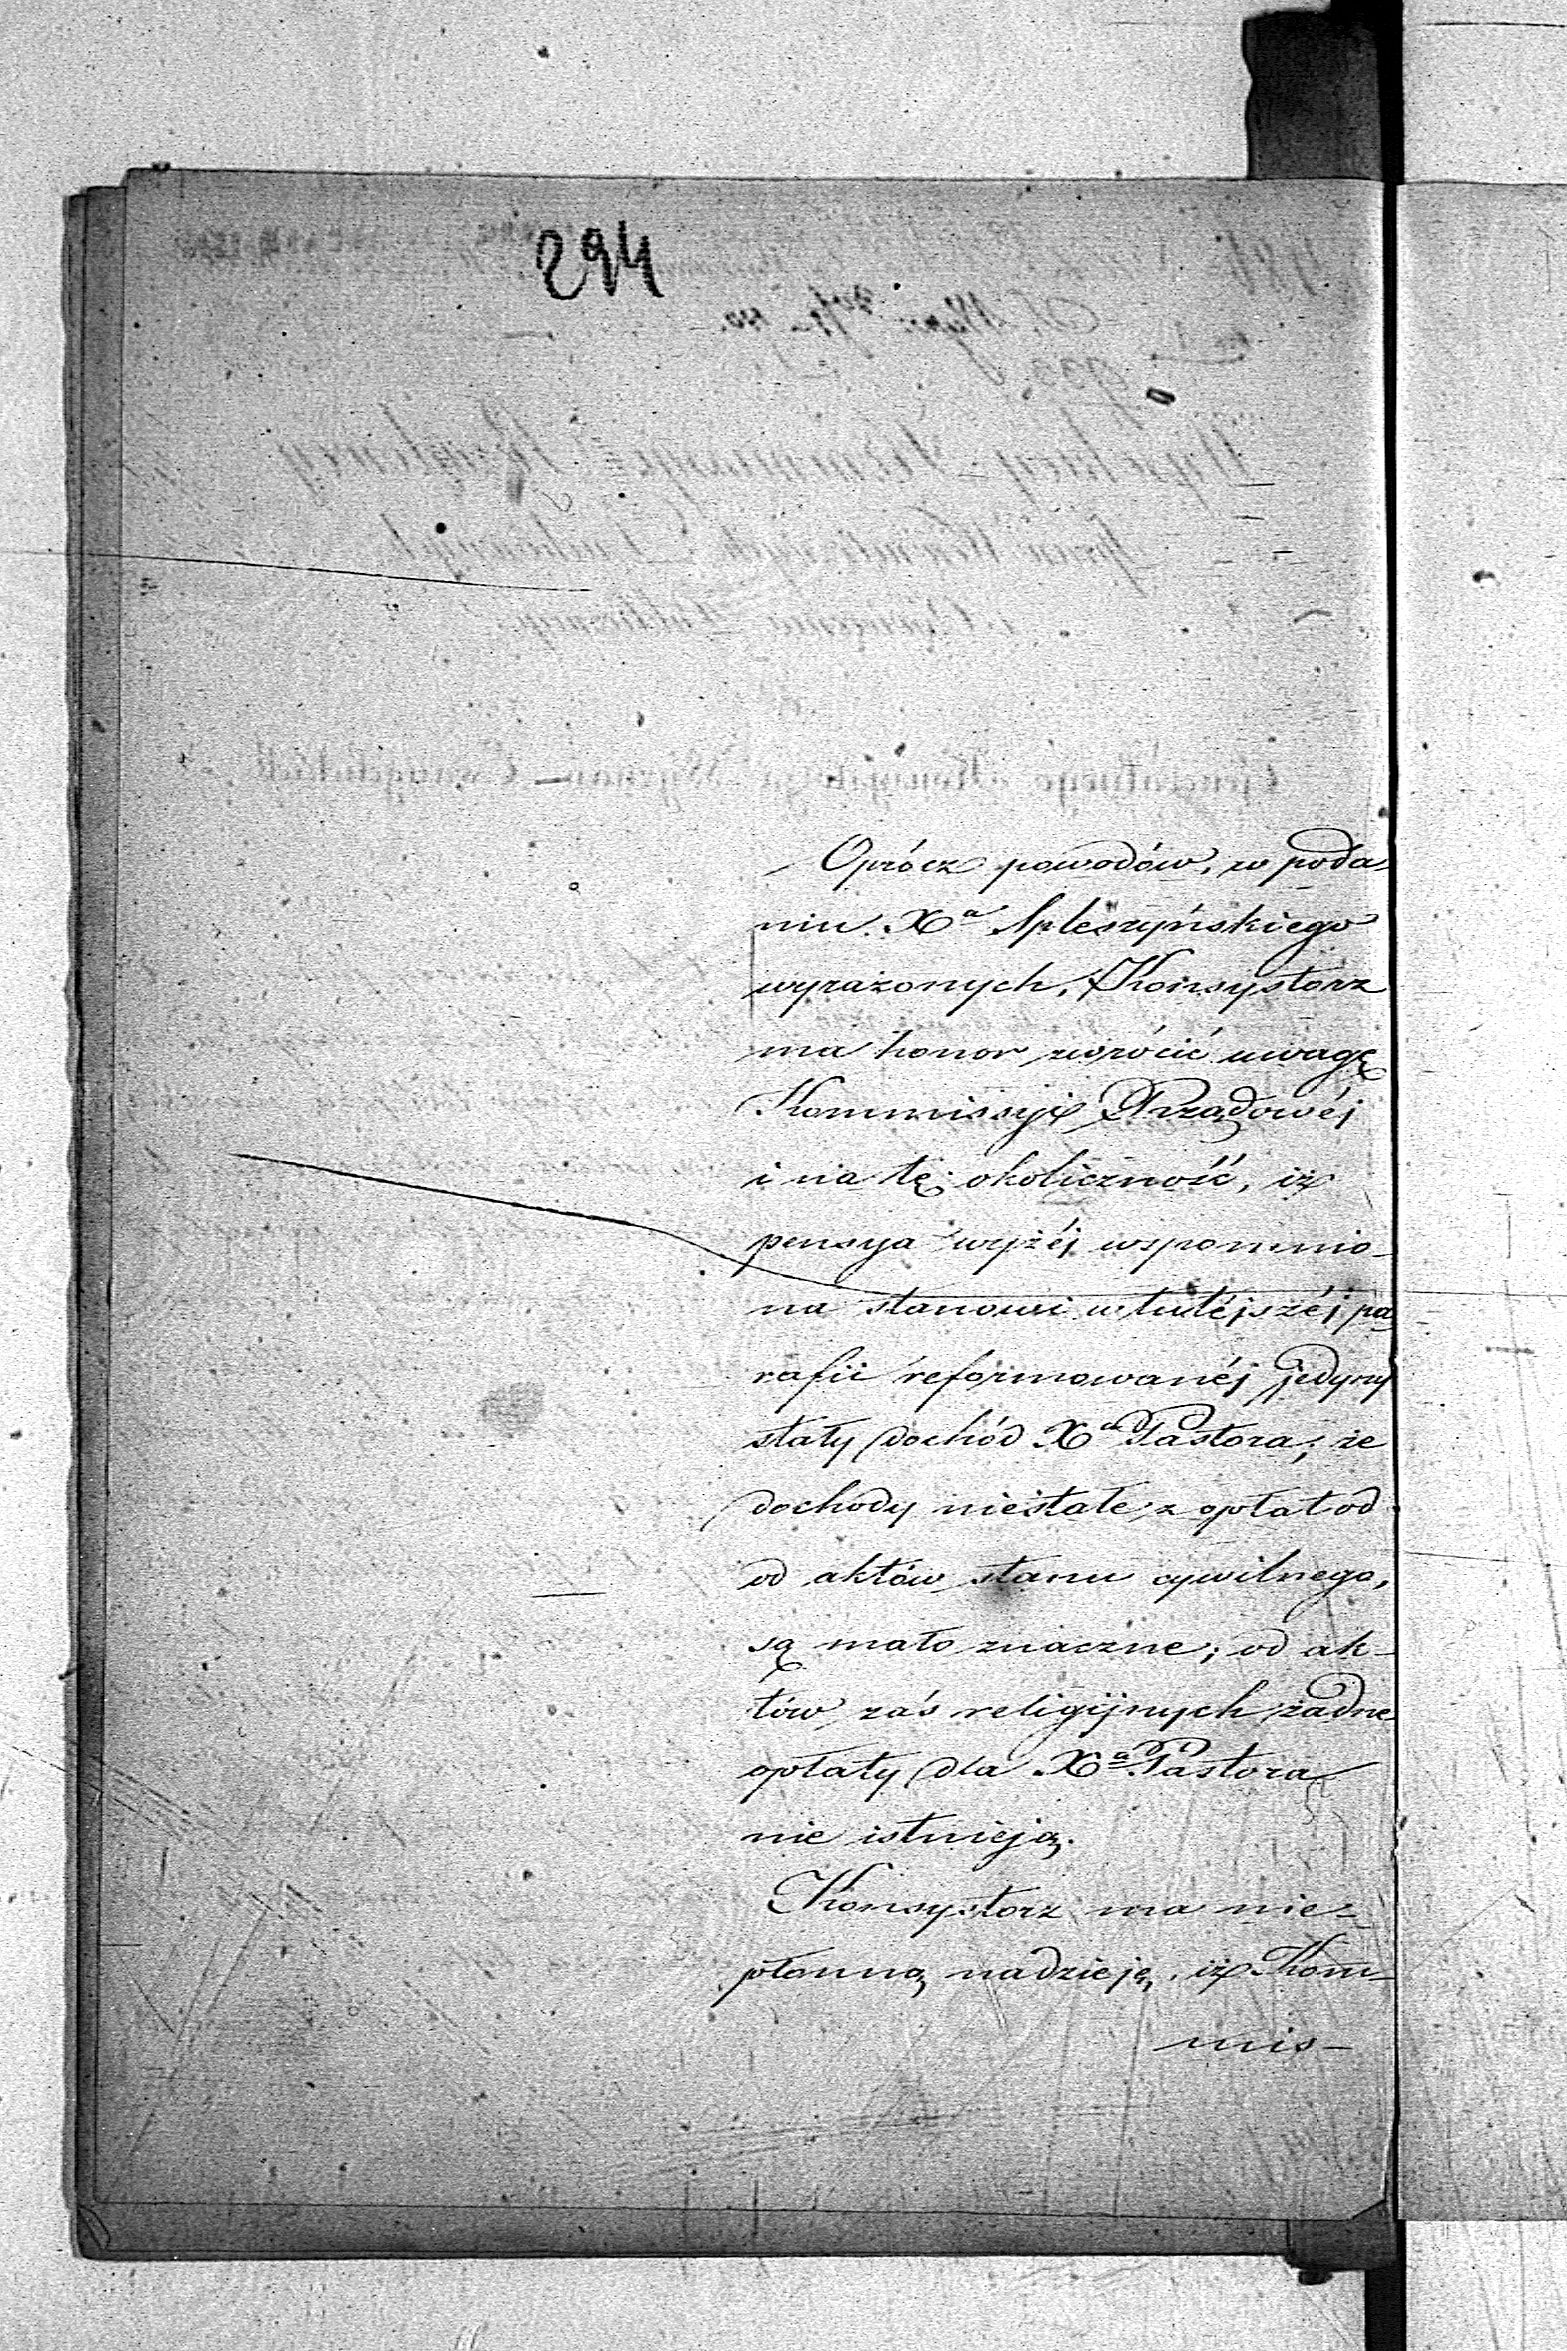 294
Oprócz powodów, w poda-
niu Xa Spleszyńskiego
wyrażonych, Konsystorz
ma honor zwrócić uwagę
Kommissyi Rządowéj
i na tę okoliczność, iż
pensya wyżéj wspomnio-
na stanowi w tutéjszéj pa
rafii reformowanéj jedyny
stały dochód Xa Pastora; że
dochody niestałe z opłat od
od aktów stanu cywilnego,
są mało znaczne; od ak-
tów zaś religijnych żadne
opłaty dla Xa Pastora
nie istnieją.
Konsystorz ma nie-
płonną nadzieję, iż Kom-
mis-